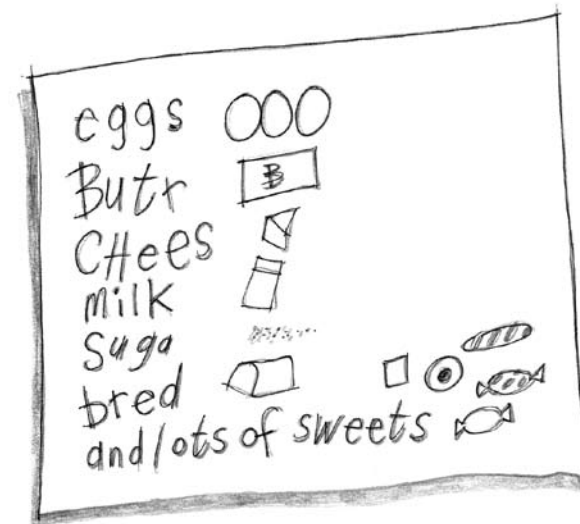 eggs
Butr B
CHees
milk
suga
bred
and lots of sweets